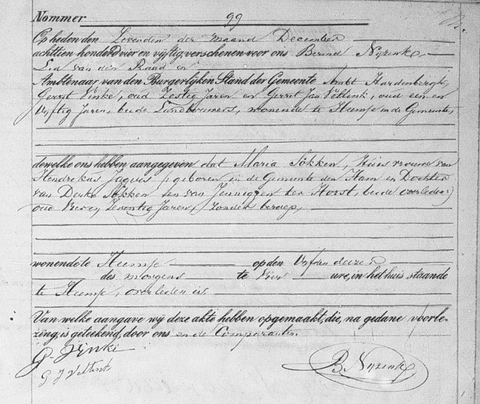 Nommer 99
Op heden den Zevenden der maand December
achttien honderd vier en vijftig, verschenen voor ons Berend Nijzink
Lid van den Raad en
Ambtenaar van den Burgerlijken Stand der Gemeente Ambt Hardenbergh,
Gerrit Vinke, oud Zestig Jaren en Gerrit Jan Veltink, oud een en
Vijftig Jaren, beide Landbouwers, wonende te Heemse in de Gemeente,
dewelke ons hebben aangegeven dat Maria Sokken, Huisvrouw van
Hendrikus, geboren in de Gemeente den Ham en Dochter
van Derk Sokken en van Jennigjen ter Horst, beide overleden
oud Zeventig Jaren, zonder beroep,
wonende te Heemse op den Vijfden dezer
des morgens te Vier ure, in het huis staande
te Heemse, overleden is
Van welke aangave wij deze akte hebben opgemaakt, die, na gedane voorle-
zing, is geteekend, door ons en de Comparanten.
G Vinke
G J Veltink
B. Nijzink